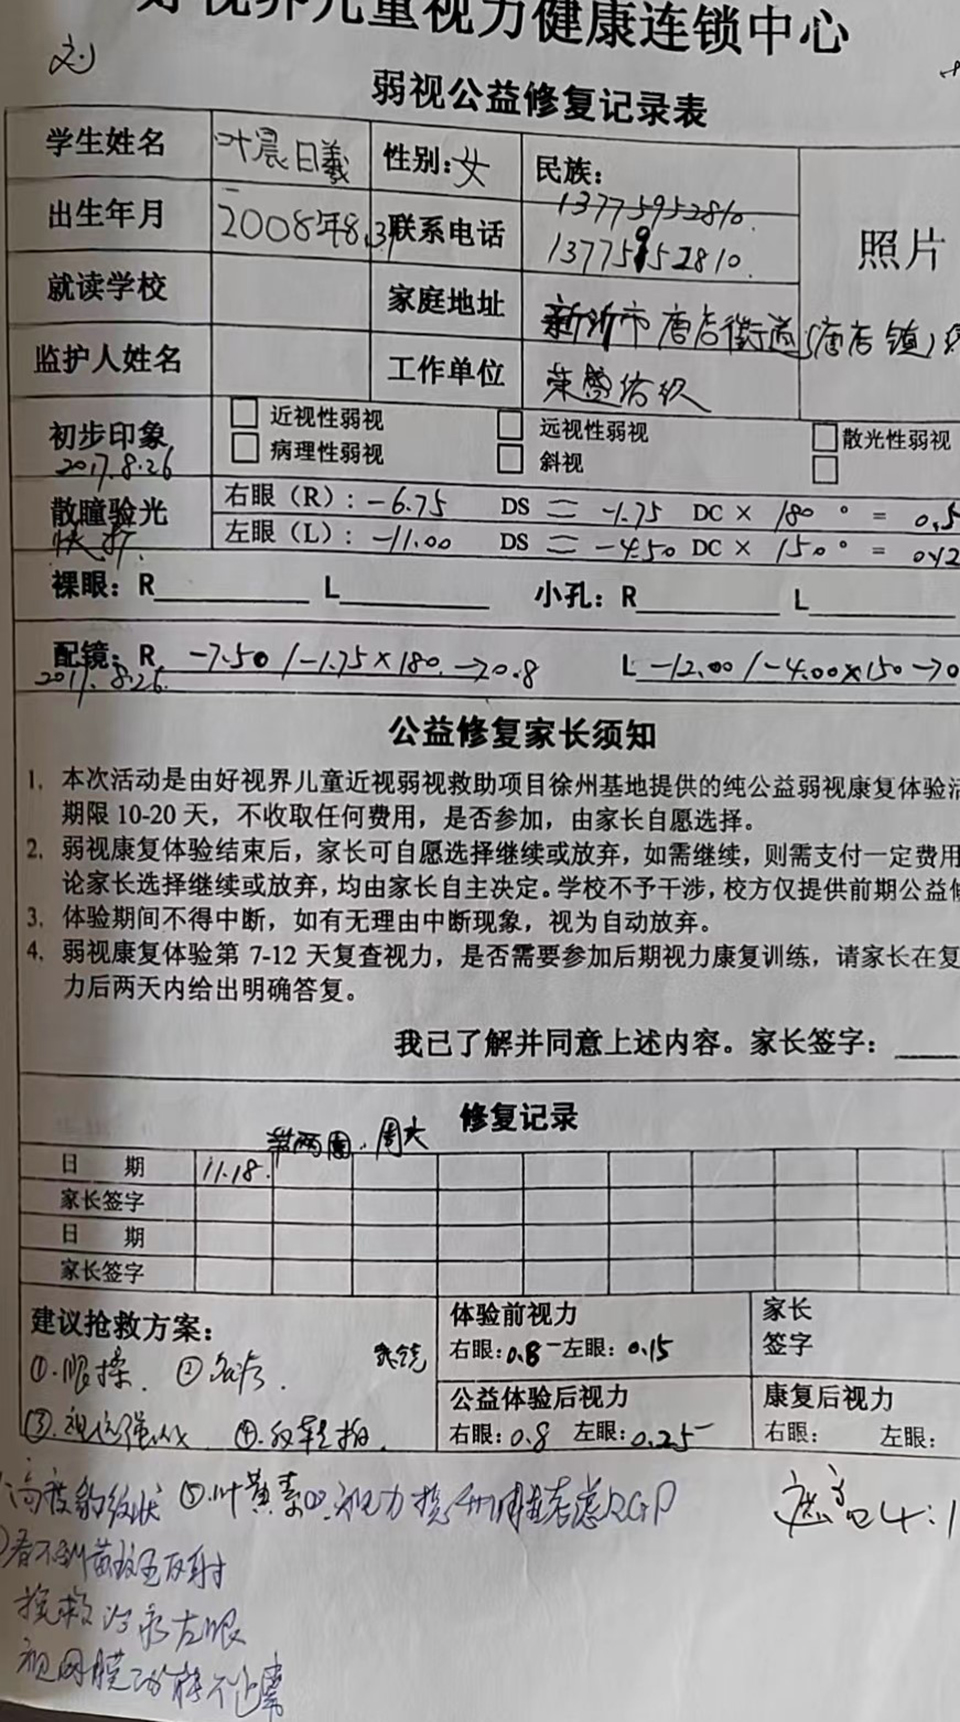 好视界儿童视力健康连锁中心
弱视公益修复记录表
学生姓名 叶晨曦 性别:女 民族: 照片
13775952810
出生年月 2008年8.3 联系电话 13775952810
就读学校 家庭地址 新沂市唐店街道(唐店镇)
监护人姓名 工作单位 荣盛纺织
初步印象 2017.8.26 近视性弱视 远视性弱视 散光性弱视
病理性弱视 斜视
散瞳验光 右眼(R): -6.75 DS = -1.75 DC × 180 ° = 0.5
左眼(L): -11.00 DS = -4.50 DC × 150 ° = 0.12
裸眼: R L 小孔: R L
配镜: R -7.50/-1.75×180 →0.8 L -12.00/-4.00×150→0
2017.8.26
公益修复家长须知
1. 本次活动是由好视界儿童近视弱视救助项目徐州基地提供的纯公益弱视康复体验活
期限 10-20 天，不收取任何费用，是否参加，由家长自愿选择。
2. 弱视康复体验结束后，家长可自愿选择继续或放弃，如需继续，则需支付一定费用
论家长选择继续或放弃，均由家长自主决定。学校不予干涉，校方仅提供前期公益修
3. 体验期间不得中断，如有无理由中断现象，视为自动放弃。
4. 弱视康复体验第 7-12 天复查视力，是否需要参加后期视力康复训练，请家长在复
力后两天内给出明确答复。
我已了解并同意上述内容。家长签字:
修复记录
日 期 11.18.
家长签字
日 期
家长签字
建议抢救方案: 体验前视力 家长
①.眼操. ② 右眼:0.8- 左眼:0.15 签字
公益体验后视力 康复后视力
③.视 ④.反转拍. 右眼:0.8 左眼:0.25- 右眼: 左眼:
高度豹纹状 ⑤.叶黄素 视力 RGP 遮盖 4:1
看不到黄斑区反射
左眼
视网膜功能不正常